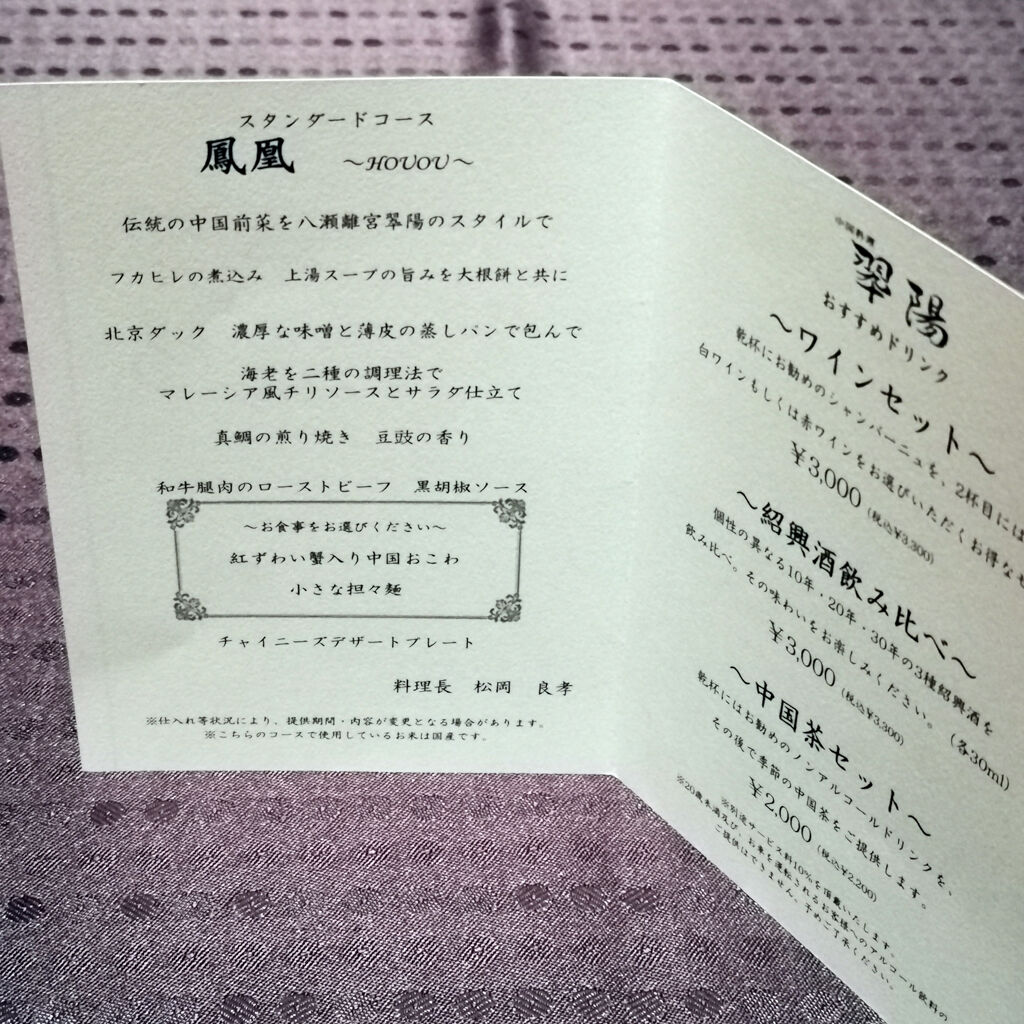 スタンダードコース
鳳凰 ～HOUOU～
伝統の中国前菜を八瀬離宮翠陽のスタイルで
フカヒレの煮込み 上湯スープの旨みを大根餅と共に
北京ダック 濃厚な味噌と薄皮の蒸しパンで包んで
海老を二種の調理法で
マレーシア風チリソースとサラダ仕立て
真鯛の煎り焼き 豆豉の香り
和牛腿肉のローストビーフ 黒胡椒ソース
～お食事をお選びください～
紅ずわい蟹入り中国おこわ
小さな担々麺
チャイニーズデザートプレート
料理長 松岡 良孝
※仕入れ等状況により、提供期間・内容が変更となる場合があります。
※こちらのコースで使用しているお米は国産です。
中国料理
翠陽
おすすめドリンク
～ワインセット～
乾杯にお勧めのシャンパーニュを、2杯目には
白ワインもしくは赤ワインをお選びいただくお得な
¥3,000 (税込¥3,300)
～紹興酒飲み比べ～
個性の異なる10年・20年・30年の3種紹興酒を
飲み比べ。その味わいをお楽しみください。(各30ml)
¥3,000 (税込¥3,300)
～中国茶セット～
乾杯にはお勧めのノンアルコールドリンクを、
その後で季節の中国茶をご提供します。
¥2,000 (税込¥2,200)
※別途サービス料10%を頂戴いたします。
※20歳未満及び、お車を運転されるお客様へのアルコール飲料の
ご提供はできません。予めご了承ください。